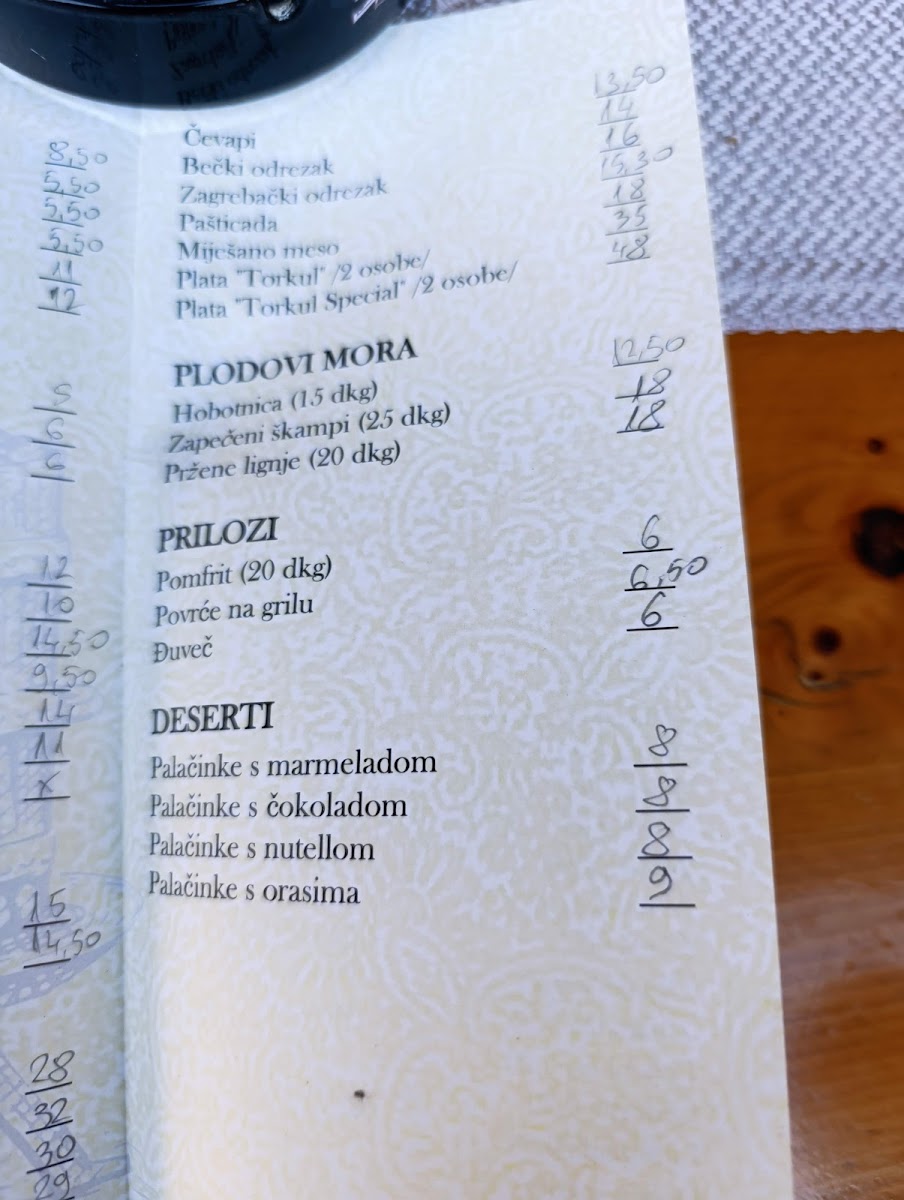 8,50
5,50
5,50
5,50
11
12
5
6
6
12
10
14,50
9,50
14
11
x
15
14,50
28
32
30
29
Čevapi 13,50
Bečki odrezak 14
Zagrebački odrezak 16
Pašticada 15,30
Miješano meso 18
Plata "Torkul" /2 osobe/ 35
Plata "Torkul Special" /2 osobe/ 48
PLODOVI MORA
Hobotnica (15 dkg) 12,50
Zapečeni škampi (25 dkg) 18
Pržene lignje (20 dkg) 18
PRILOZI
Pomfrit (20 dkg) 6
Povrće na grilu 6,50
Đuveč 6
DESERTI
Palačinke s marmeladom 8
Palačinke s čokoladom 8
Palačinke s nutellom 8
Palačinke s orasima 9